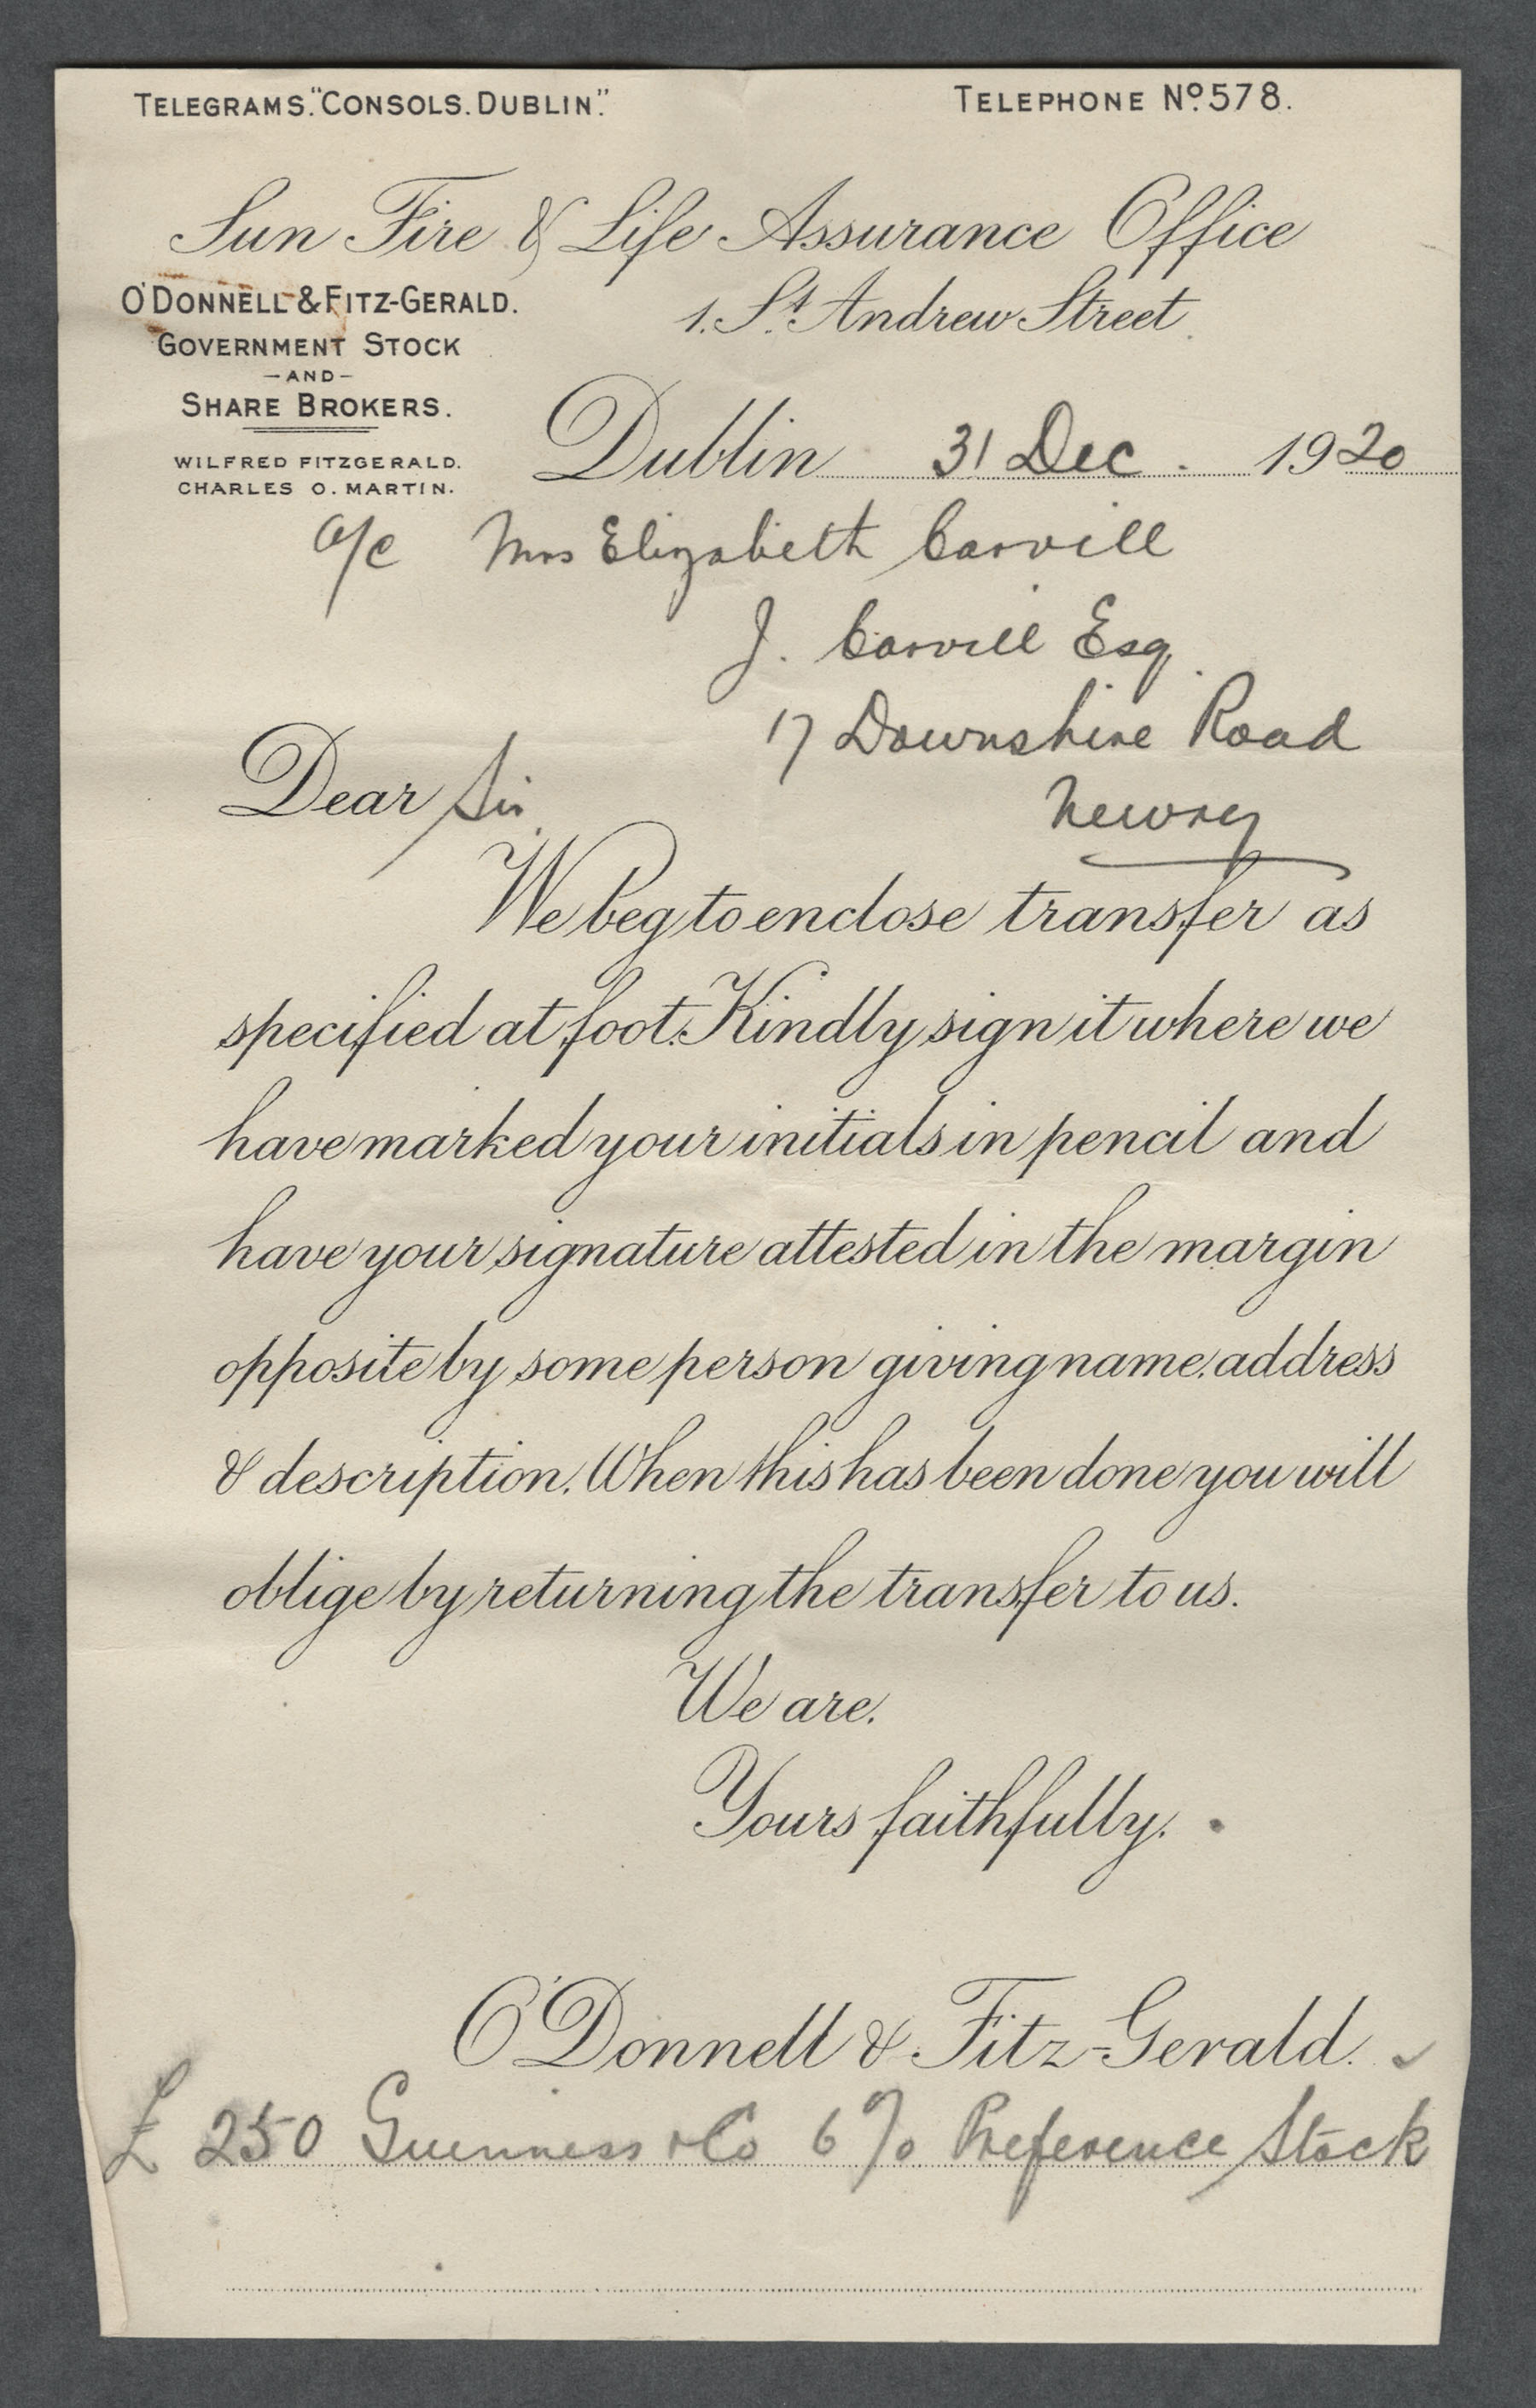 TELEGRAMS. "CONSOLS. DUBLIN."
TELEPHONE No. 578.
Sun Fire & Life Assurance Office
1. St. Andrew Street
O'DONNELL & FITZ-GERALD.
GOVERNMENT STOCK
—AND—
SHARE BROKERS.
WILFRED FITZGERALD.
CHARLES O. MARTIN.
Dublin 31 Dec. 1920
a/c Mrs Elizabeth Carvill
J. Carvill Esq.
17 Downshire Road
Newry
Dear Sir
We beg to enclose transfer as
specified at foot. Kindly sign it where we
have marked your initials in pencil and
have your signature attested in the margin
opposite by some person giving name, address
& description. When this has been done you will
oblige by returning the transfer to us.
We are.
Yours faithfully.
O'Donnell & Fitz-Gerald.
£250 Guinness & Co 6% Preference Stock